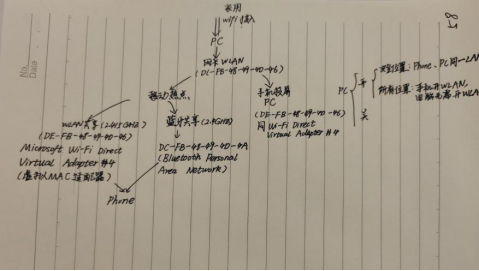 家用
wifi接入
PC
网卡WLAN
(DC-FB-48-49-4D-46)
移动热点
手机投屏
PC
WLAN共享(2.4/5GHz)
(DE-FB-48-49-4D-46)
Microsoft Wi-Fi Direct
Virtual Adapter #4
(虚拟MAC适配器)
蓝牙共享(2.4GHz)
DC-FB-48-49-4D-4A
(Bluetooth Personal
Area Network)
(DE-FB-48-49-4D-46)
同Wi-Fi Direct
Virtual Adapter #4
Phone
PC
开
关
Phone、PC同一LAN
所有位置:手机开WLAN,
No.
Date